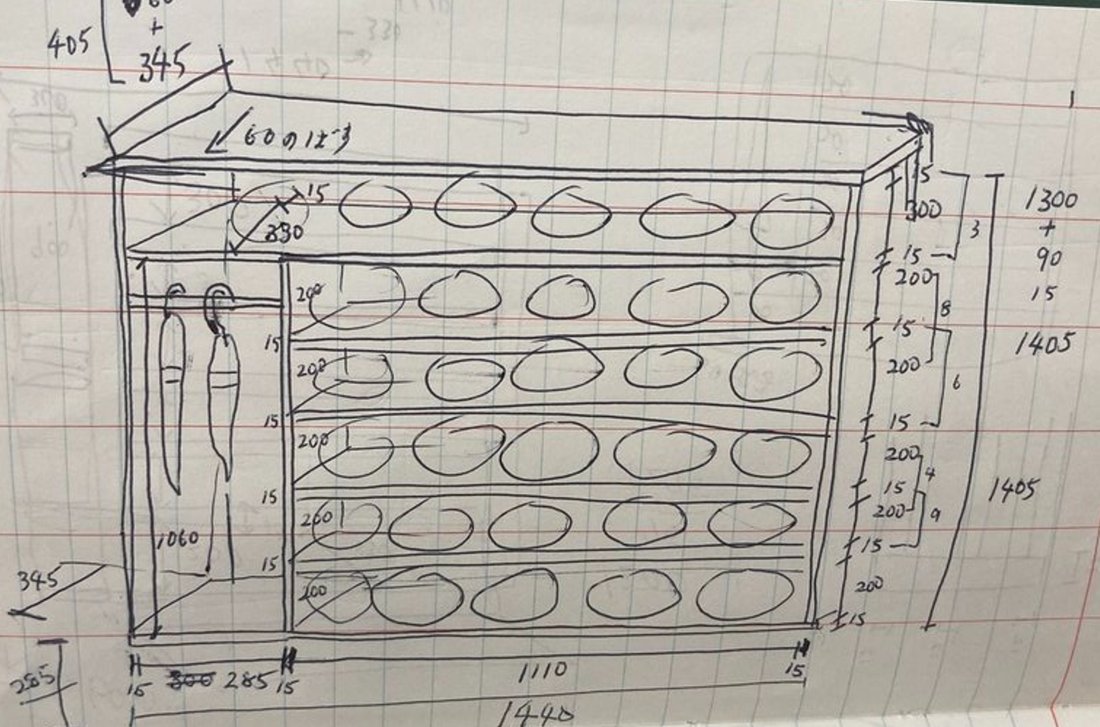 405
60
+
345
60のはね
15
330
15
300
15
3
1300
+
90
15
1405
200
200
8
15
15
200
200
6
15
15
200
200
4
15
15
1405
200
200
9
15
15
1060
200
200
15
345
285
15
300 285
15
1110
15
1440